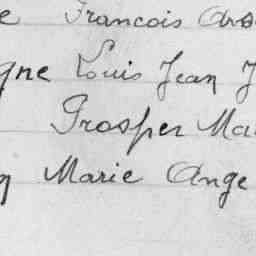 e Francois Ars
gne Louis Jean J
Prosper Ma
Marie Ange